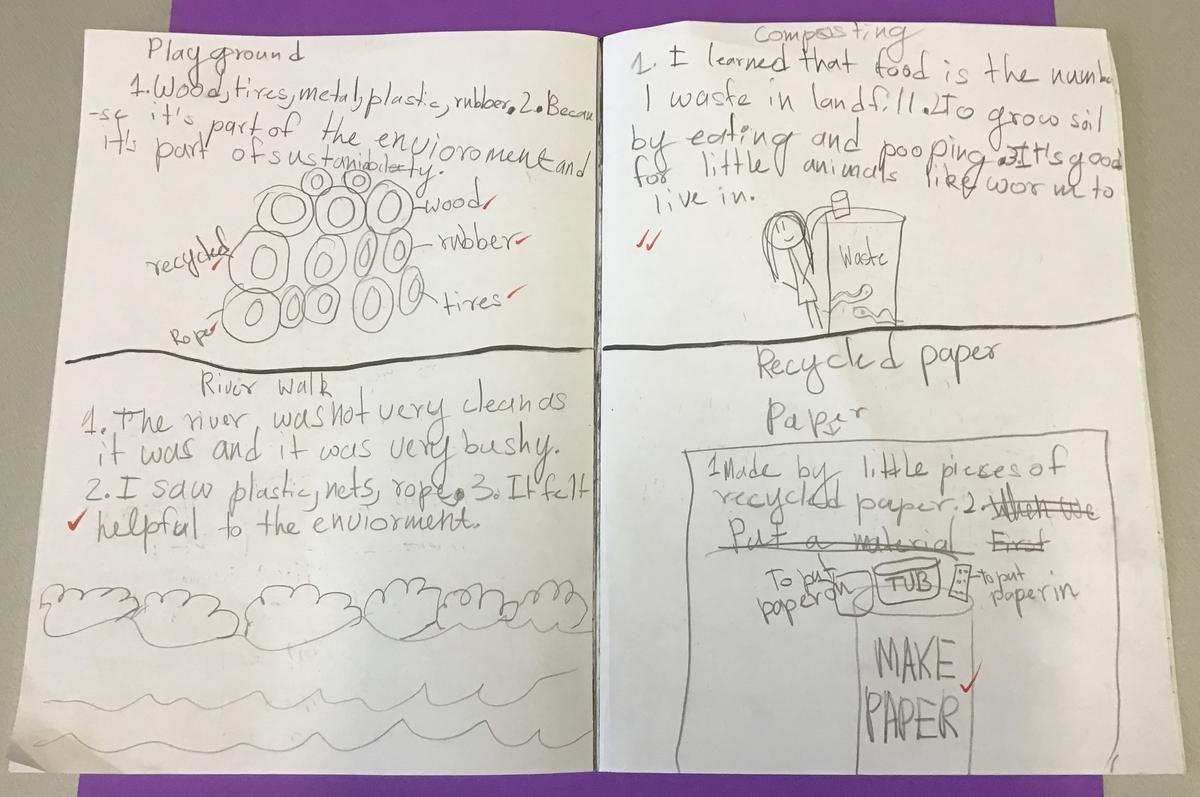 Playground
1. Wood, tires, metal, plastic, rubber. 2. Becau
-se it's part of the envioroment and
it's part of sustaniability.
wood
rubber
recycled
tires
Rope
River walk
1. The river was not very clean as
it was and it was very bushy.
2. I saw plastic, nets, rope. 3. It felt
helpful to the enviorment.
Composting
1. I learned that food is the number
1 waste in landfill. 2. To grow soil
by eating and pooping. 3. It's good
for little animals like worm to
live in.
Waste
Recycled paper
Paper
1 Made by little piceses of
recycled paper. 2. When we
Put a material First
To put
paper on
TUB
to put
paper in
MAKE
PAPER